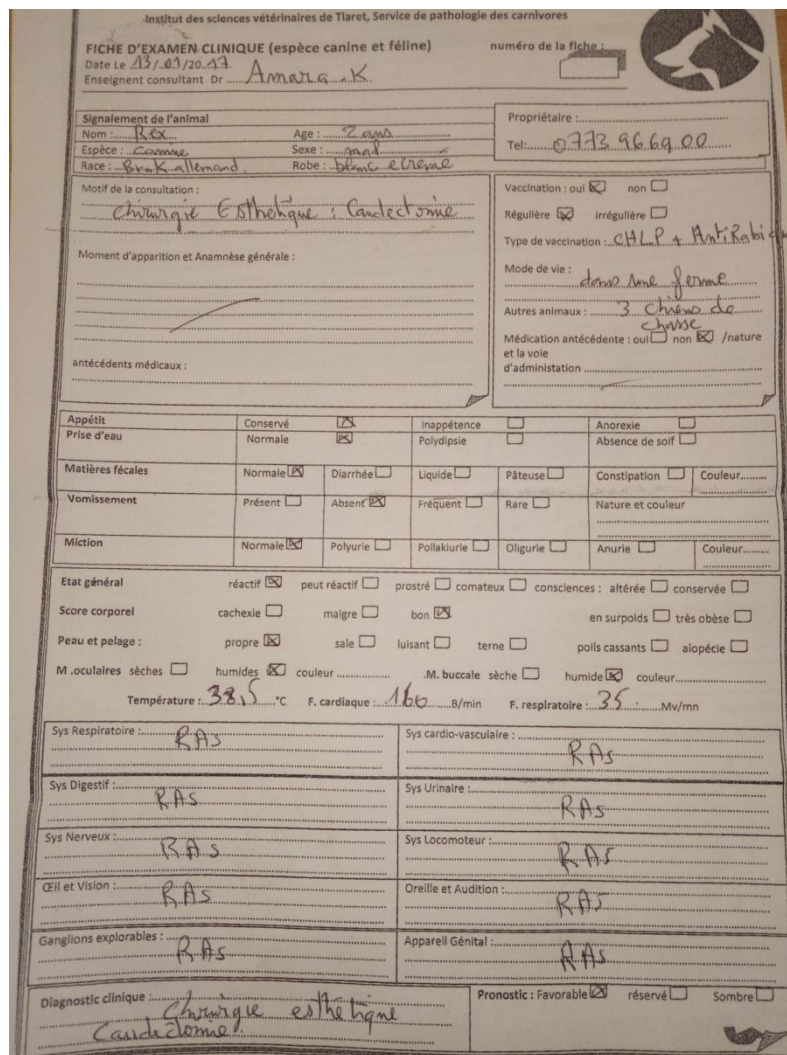 Institut des sciences vétérinaires de Tiaret, Service de pathologie des carnivores
FICHE D'EXAMEN CLINIQUE (espèce canine et féline) numéro de la fiche :
Date Le 13/01/2017
Enseignent consultant Dr Amara.K
Signalement de l'animal
Nom : Rex Age : 2 ans
Espèce : Canine Sexe : mal
Race : Brak allemand Robe : blanc e creme
Propriétaire :
Tel: 0773 96 69 00
Motif de la consultation :
chirurgie Esthetique : Caudectomie
Moment d'apparition et Anamnèse générale :
antécédents médicaux :
Vaccination : oui ☒ non ☐
Régulière ☒ irrégulière ☐
Type de vaccination : CHLP + AntiRabi
Mode de vie :
dans une ferme
Autres animaux : 3 chiens de
chasse
Médication antécédente : oui ☐ non ☒ /nature
et la voie
d'administation
Appétit Conservé ☒ Inappétence ☐ Anorexie ☐
Prise d'eau Normale ☒ Polydipsie ☐ Absence de soif ☐
Matières fécales Normale ☒ Diarrhée ☐ Liquide ☐ Pâteuse ☐ Constipation ☐ Couleur
Vomissement Présent ☐ Absent ☒ Fréquent ☐ Rare ☐ Nature et couleur
Miction Normale ☒ Polyurie ☐ Pollakiurie ☐ Oligurie ☐ Anurie ☐ Couleur
Etat général réactif ☒ peut réactif ☐ prostré ☐ comateux ☐ consciences : altérée ☐ conservée ☐
Score corporel cachexie ☐ maigre ☐ bon ☒ en surpoids ☐ très obèse ☐
Peau et pelage : propre ☒ sale ☐ luisant ☐ terne ☐ poils cassants ☐ alopécie ☐
M .oculaires sèches ☐ humides ☒ couleur .M. buccale sèche ☐ humide ☒ couleur
Température : 38,5 °C F. cardiaque : 160 B/min F. respiratoire : 35 Mv/mn
Sys Respiratoire : RAS
Sys cardio-vasculaire : RAS
Sys Digestif : RAS
Sys Urinaire : RAS
Sys Nerveux : RAS
Sys Locomoteur : RAS
Œil et Vision : RAS
Oreille et Audition : RAS
Ganglions explorables : RAS
Appareil Génital : RAS
Diagnostic clinique : Chirurgie esthétique
Caudectomie.
Pronostic : Favorable ☒ réservé ☐ Sombre ☐